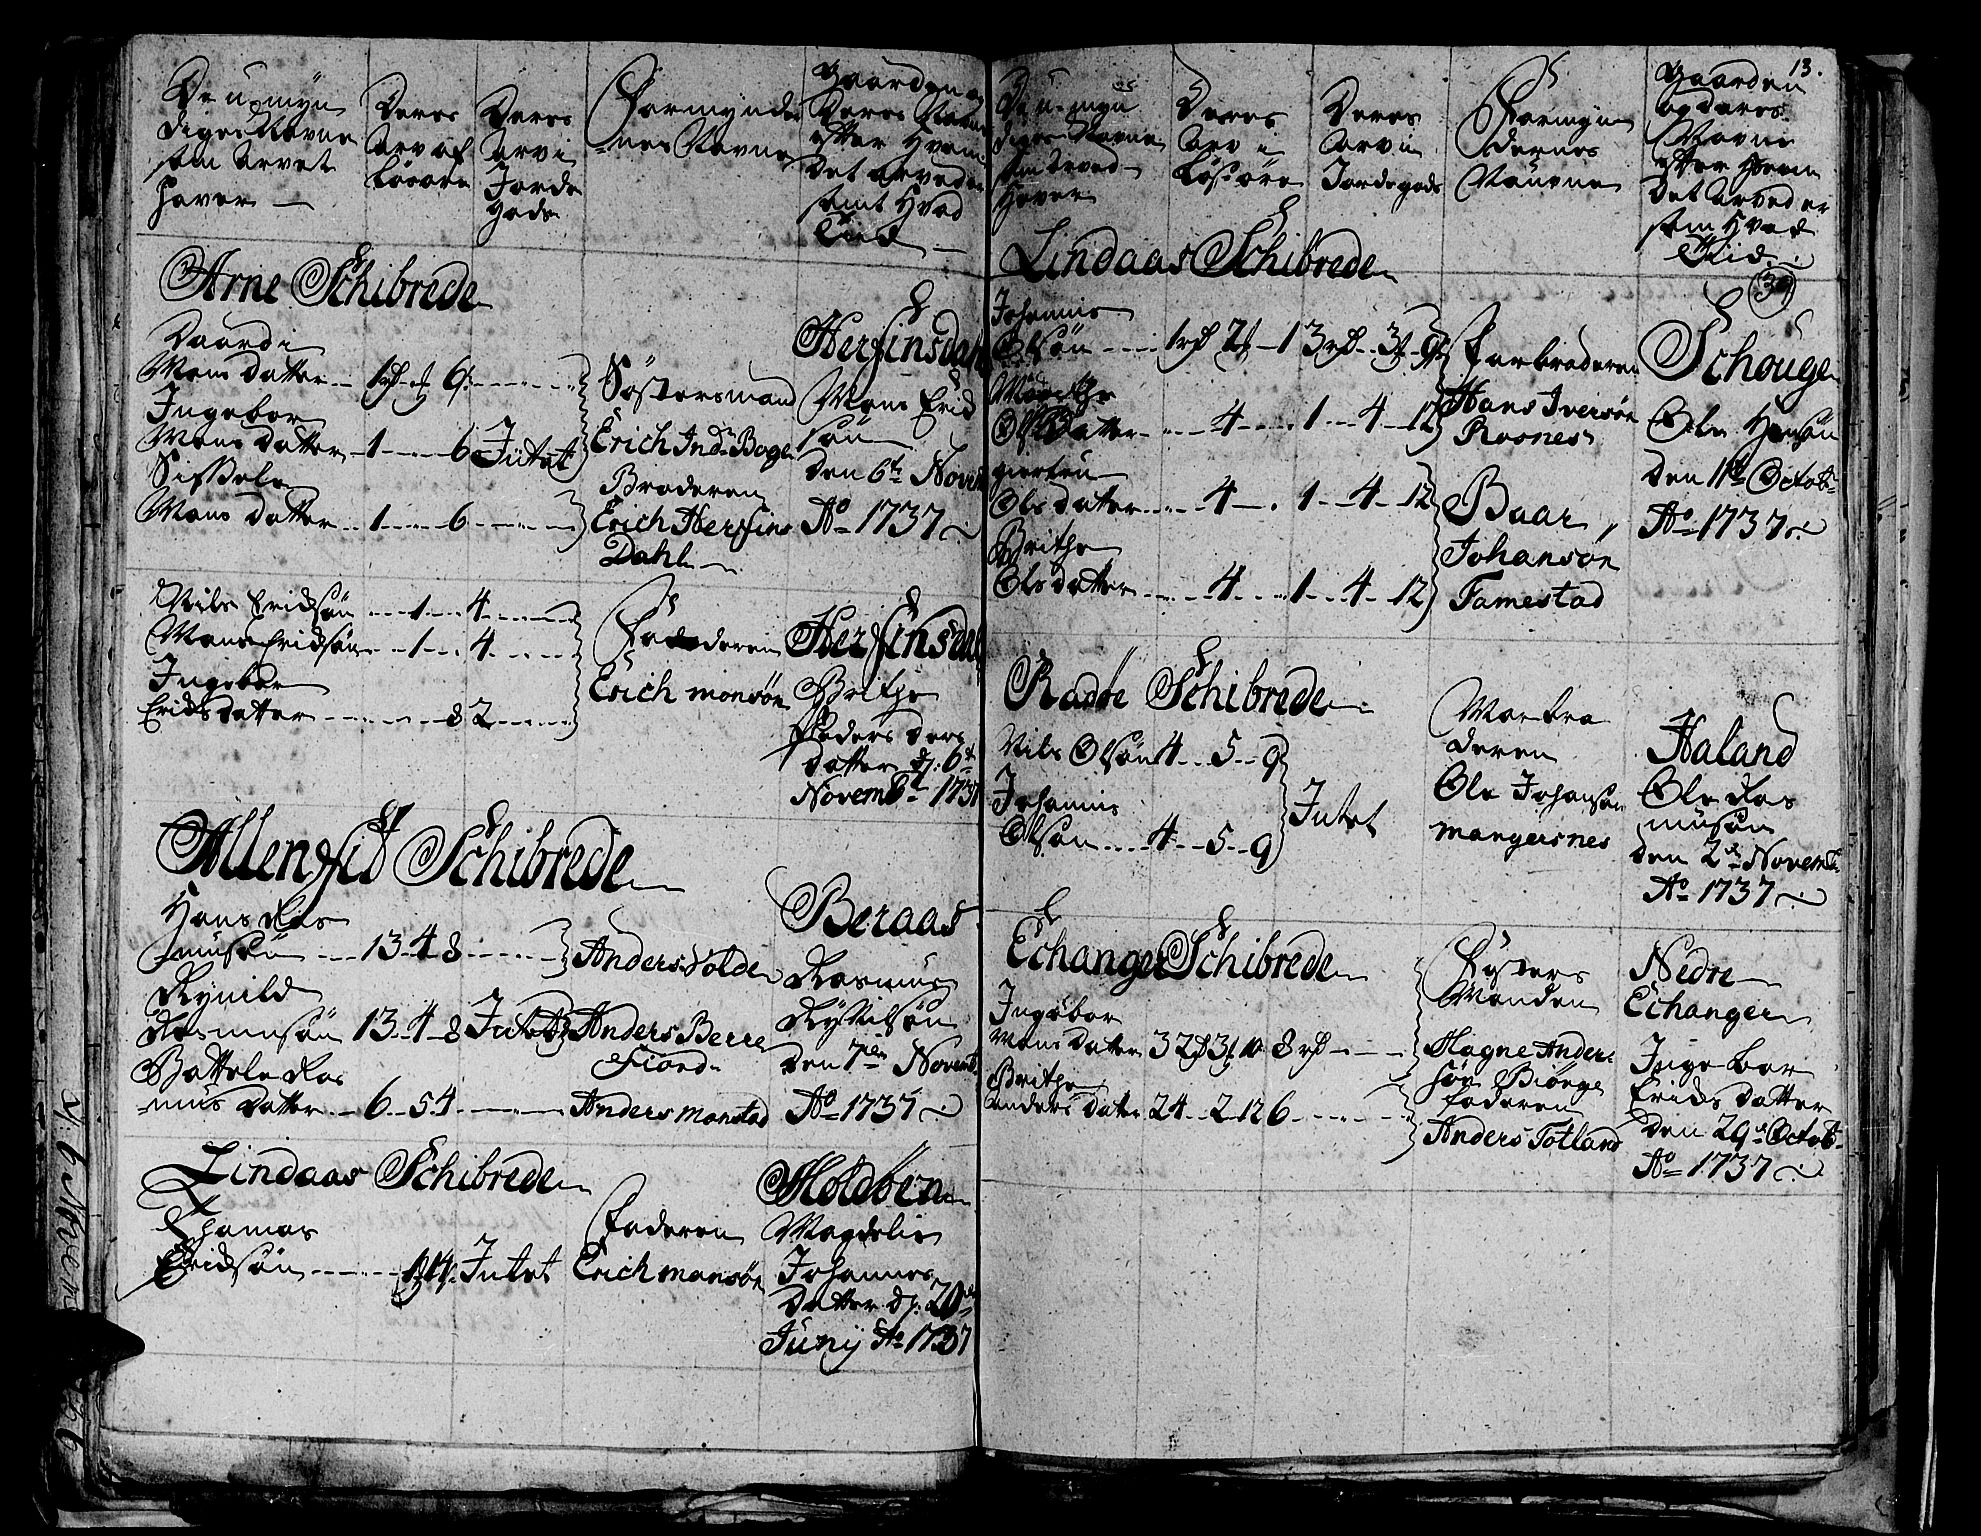 De umÿn
diges Navne
som Arvet
haver —
Deres
Arv af
Løsøre
Deres
Arv i
Jorde
Gods
Formÿnder
nes Navne
Gaarden og
Deres Navne
efter Hvem
Det arved er
samt Hvad
Tiid —
Arne Schibrede
Mons datter
Ingebor
Mons datter 1 6 Intet
Sissele
Mons datter 1 6
Søstersmand
Erich Ind. Boge
Broderen
Erich Herfins
Dahl
Herfinsdahl
Mons Erich
søn
Den 6te Novem
Ao 1737
Nils Erichsøn 1 4
Mons Erichsøn 1 4
Ingebor
Erichs datter 82
Faderen
Erich Monsøn
Herfinsdal
Brithe
Peders Ders
datter d: 6te
Novembr 1737
Allenfit Schibrede
Hans Ras
musøn 13 4 8
Rasmusøn 13 4 8 Intet
Ras
mus datter 6 5 4
Anders Solde
Anders Berre
Fiord
Anders Monstad
Beraas
Rasmus
Den 7de Novemb
Ao 1737
Lindaas Schibrede
Thomas
Erichsøn Intet
Faderen
Erich Monsøn
Holdøen
Magdeli
Johannes
datter d: 20de
Junÿ Ao 1737
13.
De u-mÿn
diges Navne
som Arved
haver
Deres
Arv i
Løsøre
Deres
Arv i
Jordegods
Formÿn
dernes
Navne
Gaarden
og deres
Navne
efter Hvem
Det Arved er
som Hvad
Tiid
39
Lindaas Schibrede
Johannis
Olsøn 1 rd 2 1 3 rd 3 9
Marithe
Ols datter 4 1 4 12
Ols datter 4 1 4 12
Brithe
Ols datter 4 1 4 12
Farbroderen
Hans Iversøn
Rosnes
Baar
Johansøn
Tamestad
Schouge
Ole Hansøn
Den 11te Octob
Ao 1737
Radøe Schibrede
Nils Olsøn 4 5 9
Johannis
Olsøn 4 5 9
Intet
Morbro
deren
Ole Johansøn
Mangersnes
Haland
Ole Ras
musøn
Den 2de Novemb
Ao 1737
Echanger Schibrede
Ingebor
Mons datter 32 3 10 8 rd
Brithe
Anders dater 24 2 12 6
Søsters
Manden
Hagne Ander
søn Biørge
Faderen
Anders Totland
Nedre
Echanger
Ingebor
Erichs datter
Den 29de Octob
Ao 1737